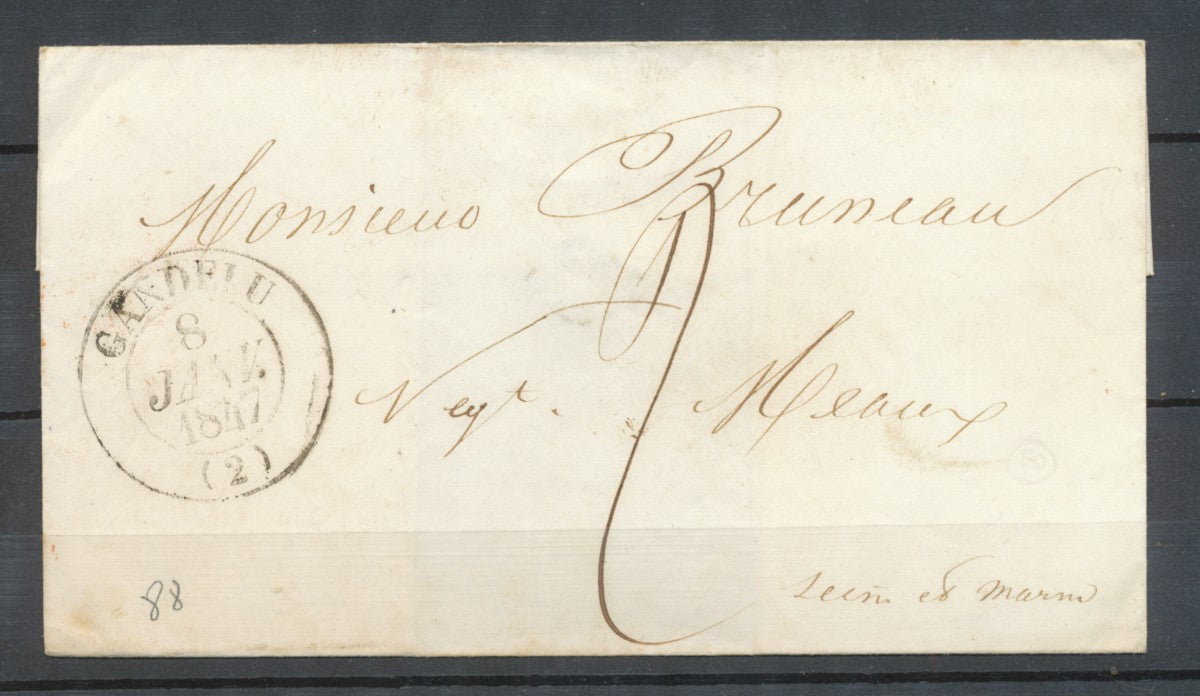 Monsieur Bruneau
Negt. Meaux
Seine et Marne
GANDELU
8
JANV.
1847
(2)
88